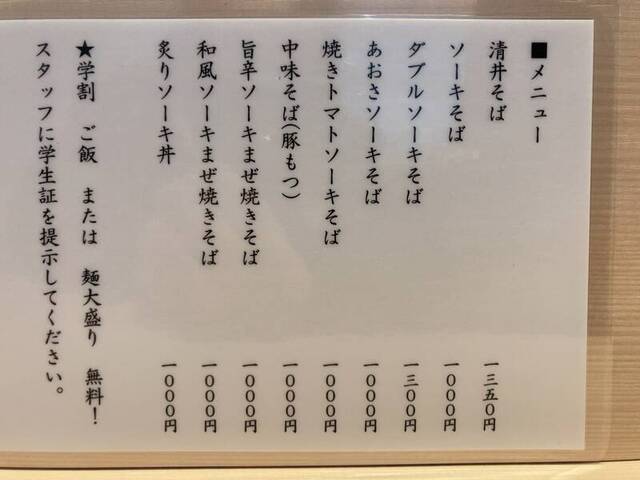 ■メニュー
清井そば 一三五〇円
ソーキそば 一〇〇〇円
ダブルソーキそば 一三〇〇円
あおさソーキそば 一〇〇〇円
焼きトマトソーキそば 一〇〇〇円
中味そば(豚もつ) 一〇〇〇円
旨辛ソーキまぜ焼きそば 一〇〇〇円
和風ソーキまぜ焼きそば 一〇〇〇円
炙りソーキ丼 一〇〇〇円
★学割 ご飯 または 麺大盛り 無料!
スタッフに学生証を提示してください。